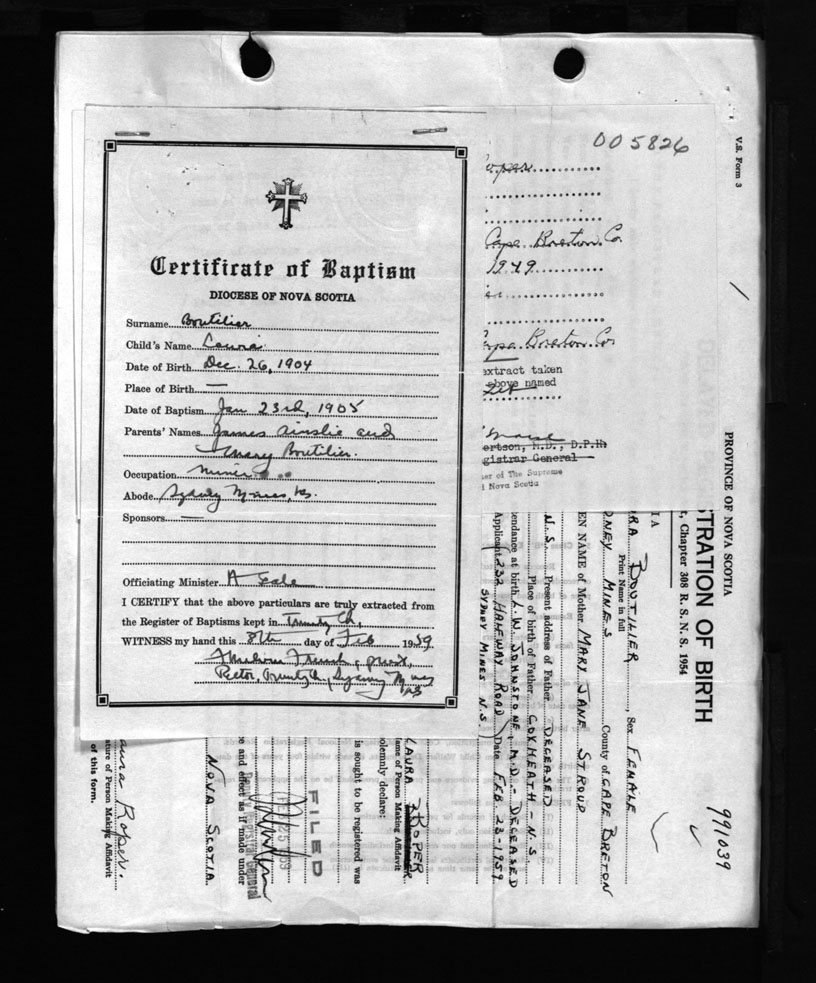 005826
V.S. Form 3
Certificate of Baptism
DIOCESE OF NOVA SCOTIA
Surname Boutilier
Child's Name Laura
Date of Birth Dec. 26, 1904
Place of Birth —
Date of Baptism Jan 23rd, 1905
Parents' Names James Ainslie and
Mary Boutilier.
Occupation miner
Abode Sydney Mines, NS.
Sponsors —
Officiating Minister A Gale
I CERTIFY that the above particulars are truly extracted from
the Register of Baptisms kept in Trinity Ch.
WITNESS my hand this 8th day of Feb 1959
Rector, Trinity Ch, Sydney Mines
NS
Cape Breton Co.
1949
Cape Breton Co
extract taken
above named
ertson, M.D., D.P.H.
gistrar General
er of The Supreme
Nova Scotia
PROVINCE OF NOVA SCOTIA
STRATION OF BIRTH
Chapter 308 R. S. N. S. 1954
991039
IA
RA BOUTILIER, Sex FEMALE
Print Name in full
DNEY MINES County of CAPE BRETON
EN NAME of Mother MARY JANE STROUD
N.S. Present address of Father DECEASED
Place of birth of Father COXHEATH - N.S.
endance at birth L.W. JOHNSTONE, M.D. - DECEASED
Applicant 232 HALFWAY ROAD Date FEB. 23-1959
SYDNEY MINES N.S.
LAURA ROPER
ame of Person Making Affidavit
olemnly declare:
is sought to be registered was
FILED
e and effect as if made under
NOVA SCOTIA
aura Roper.
ature of Person Making Affidavit
of this form.